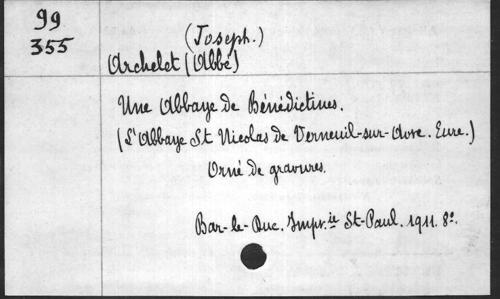 99
355
(Joseph.)
Archelet (Abbé)
Une Abbaye de Bénédictines.
(L'Abbaye St Nicolas de Verneuil-sur-Avre. Eure.)
Orné de gravures.
Bar-le-Duc. Impr.ie St-Paul. 1911. 8º.